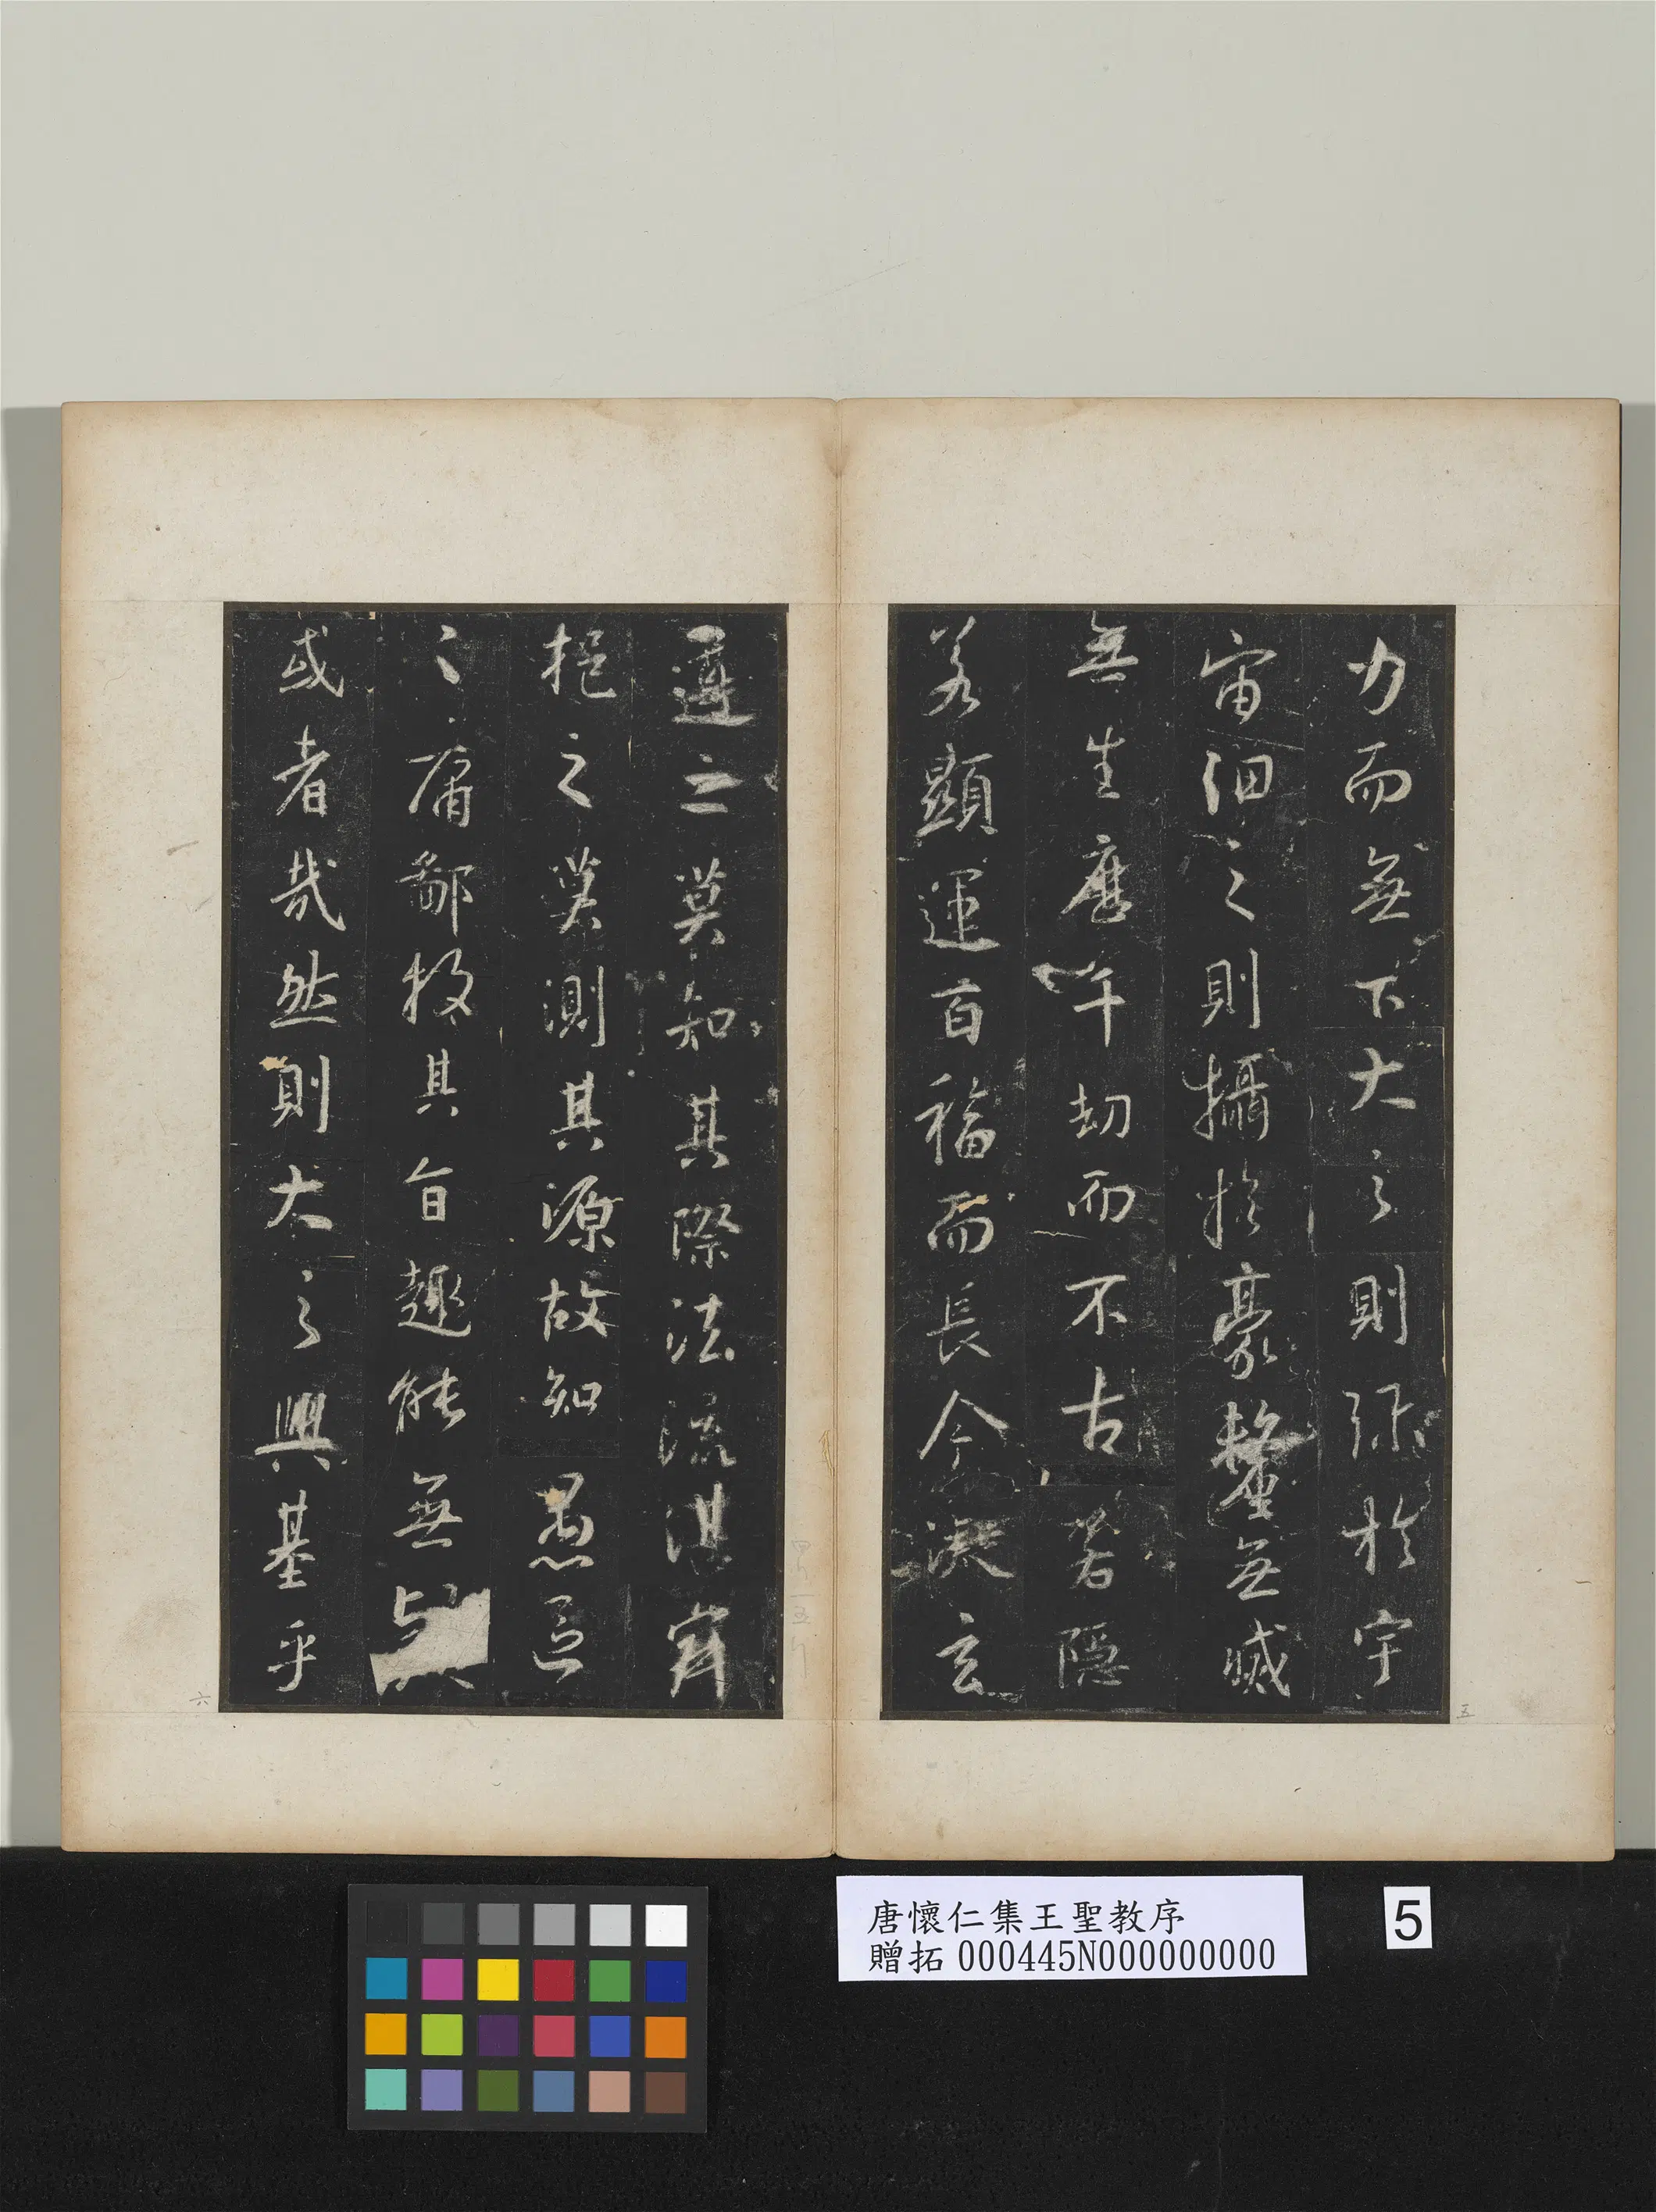 力而無下大之則彌於宇
宙細之則攝於豪釐無滅
無生歷千劫而不古若隱
若顯運百福而長今凝玄
遵之莫知其際法流湛寂
挹之莫測其源故知愚區
〻庸鄙投其旨趣能無
或者哉然則大之興基乎
五
六
唐懷仁集王聖教序
贈拓 000445N000000000
5